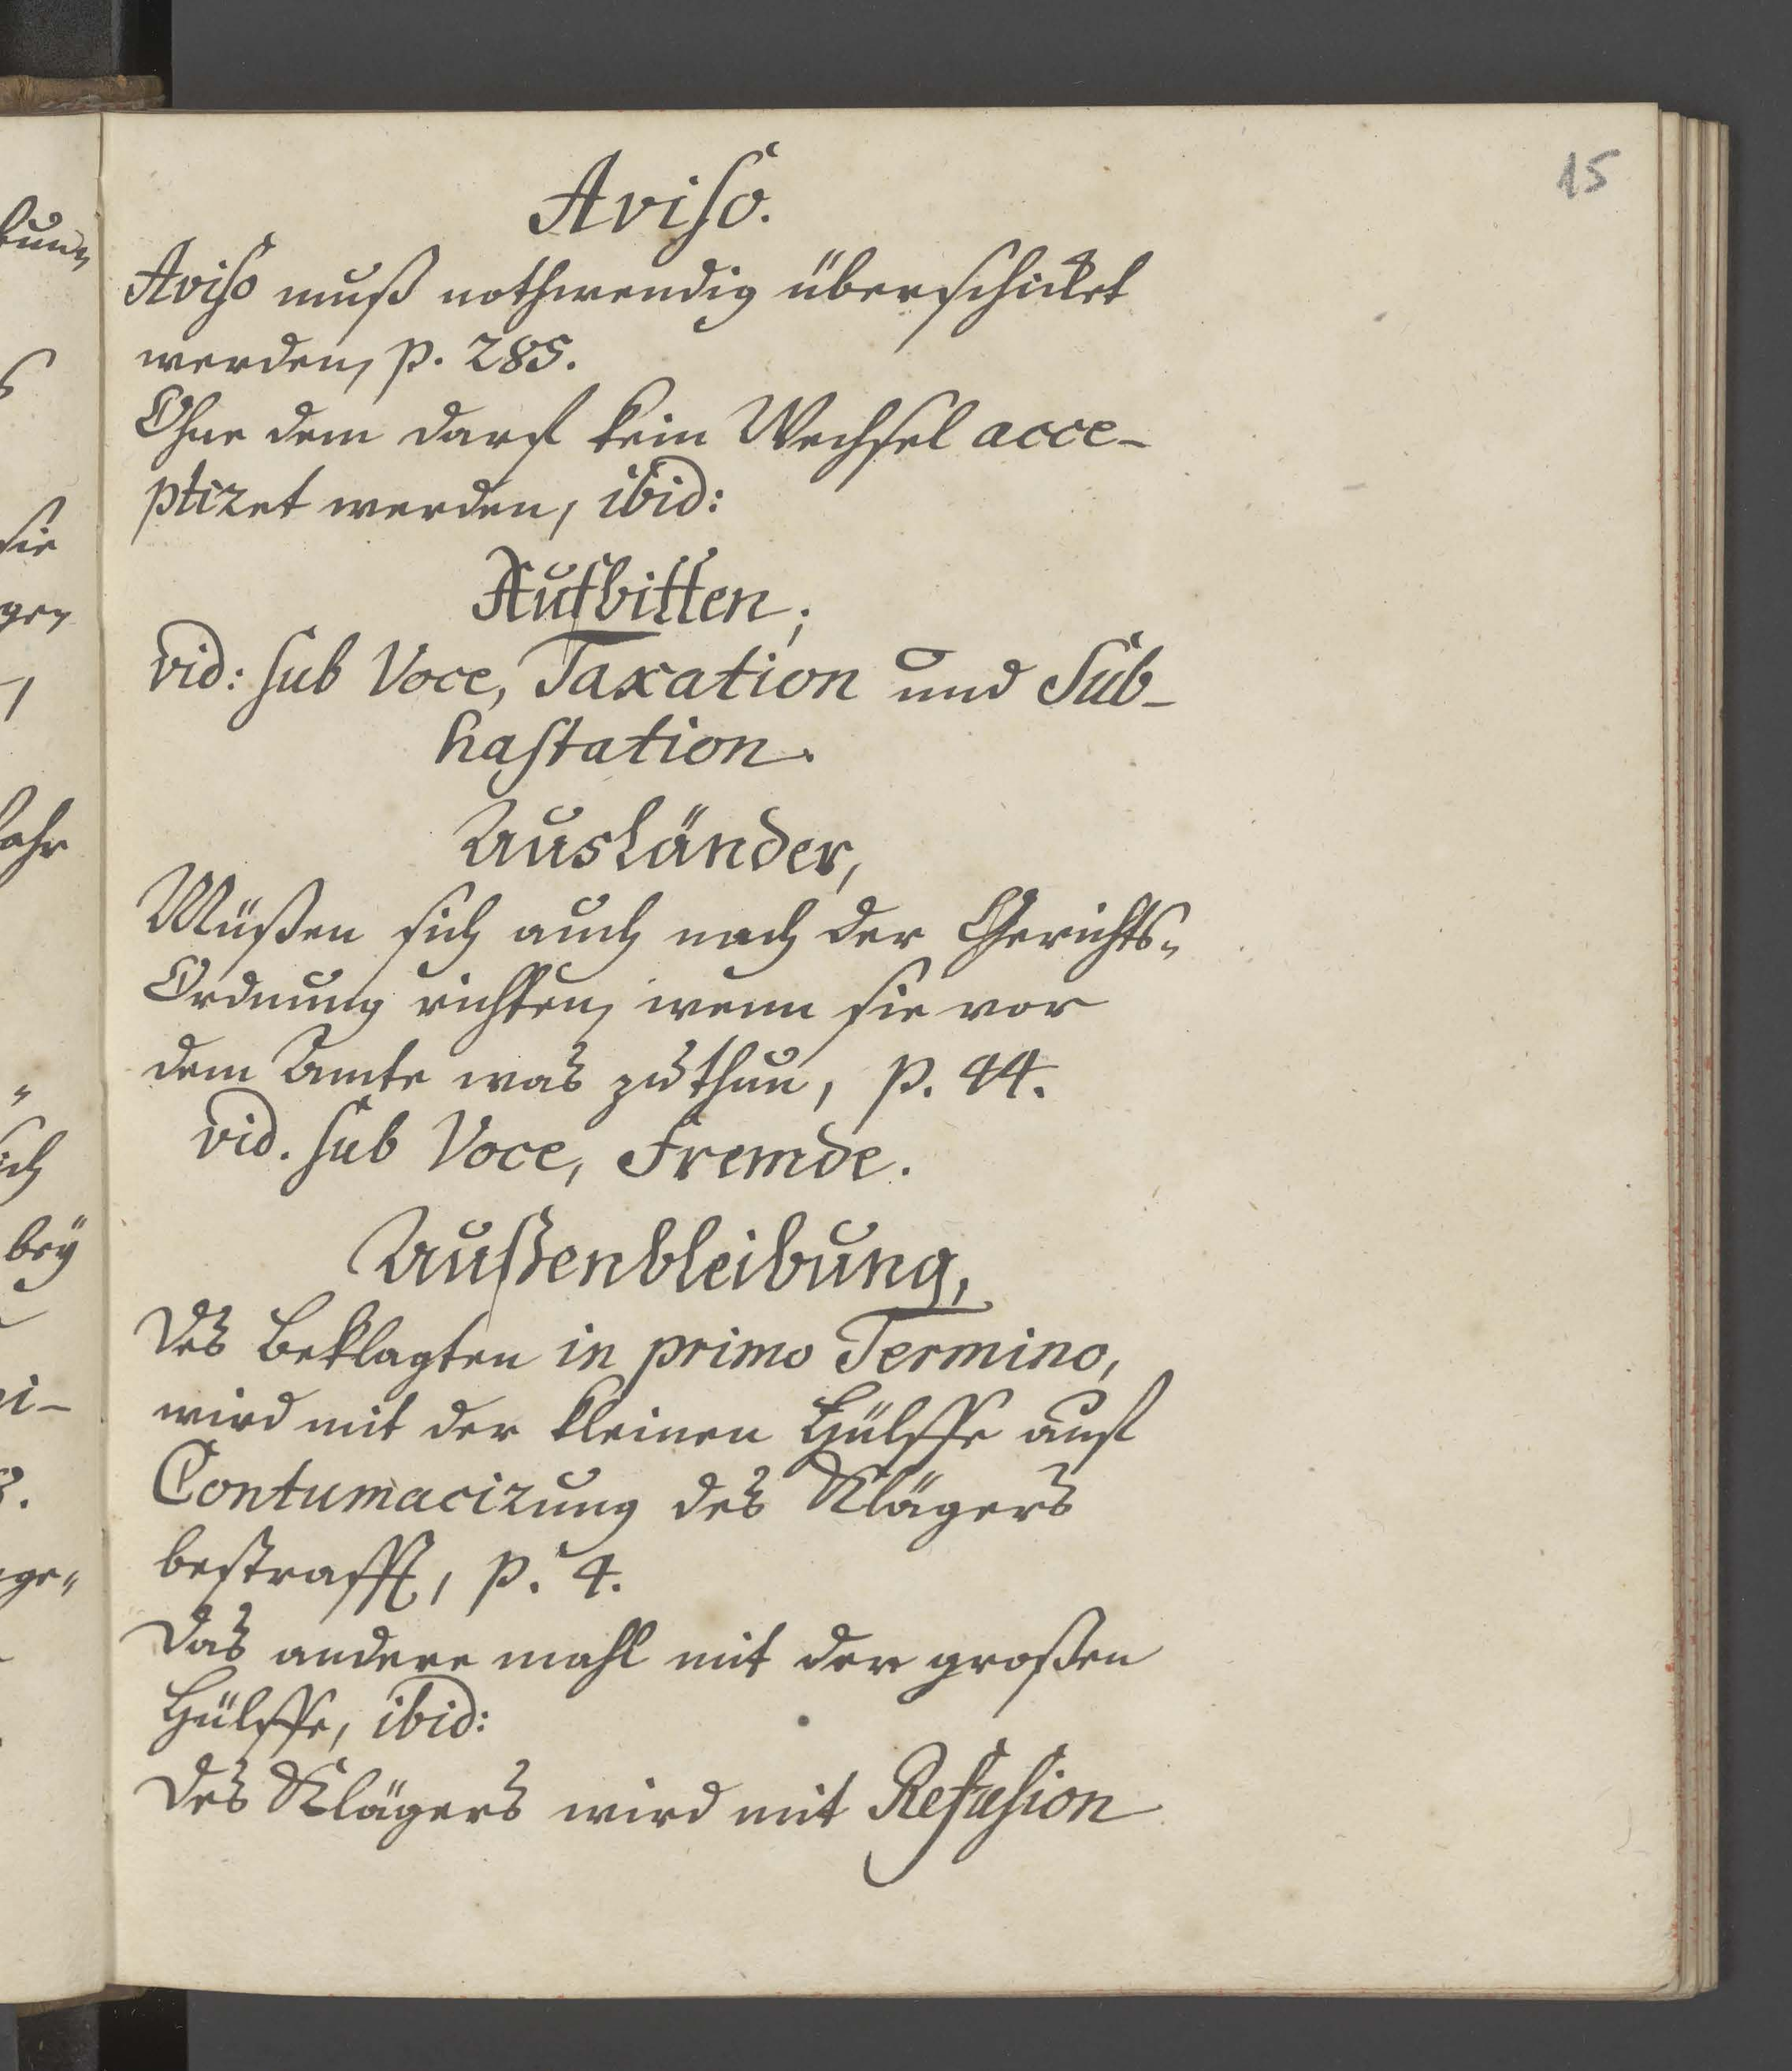 15
Aviso.
Aviso muß nothwendig überschicket
werden, p. 285.
Ohne dem darf kein Wechsel acce-
ptiret werden, ibid:
Aufbitten;
vid: sub Voce, Taxation und Sub-
hastation.
Ausländer,
Müßen sich auch nach der Gerichts-
Ordnung richten, wenn sie vor
dem Amte was zu thun, p. 44.
vid. sub Voce, Fremde.
Außenbleibung,
Des Beklagten in primo Termino,
wird mit der kleinen Hülffe auf
Contumacirung des Klägers
bestrafft, p. 4.
Das andere mahl mit der großen
Hülffe, ibid:
Des Klägers wird mit Refusion